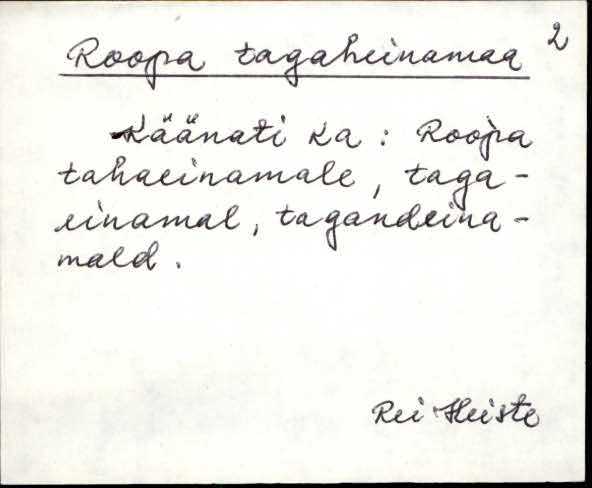 2
Roopa tagaheinamaa
Käänati ka : Roopa
tahaeinamale, taga-
einamal, tagandeina-
mald.
Rei Heiste